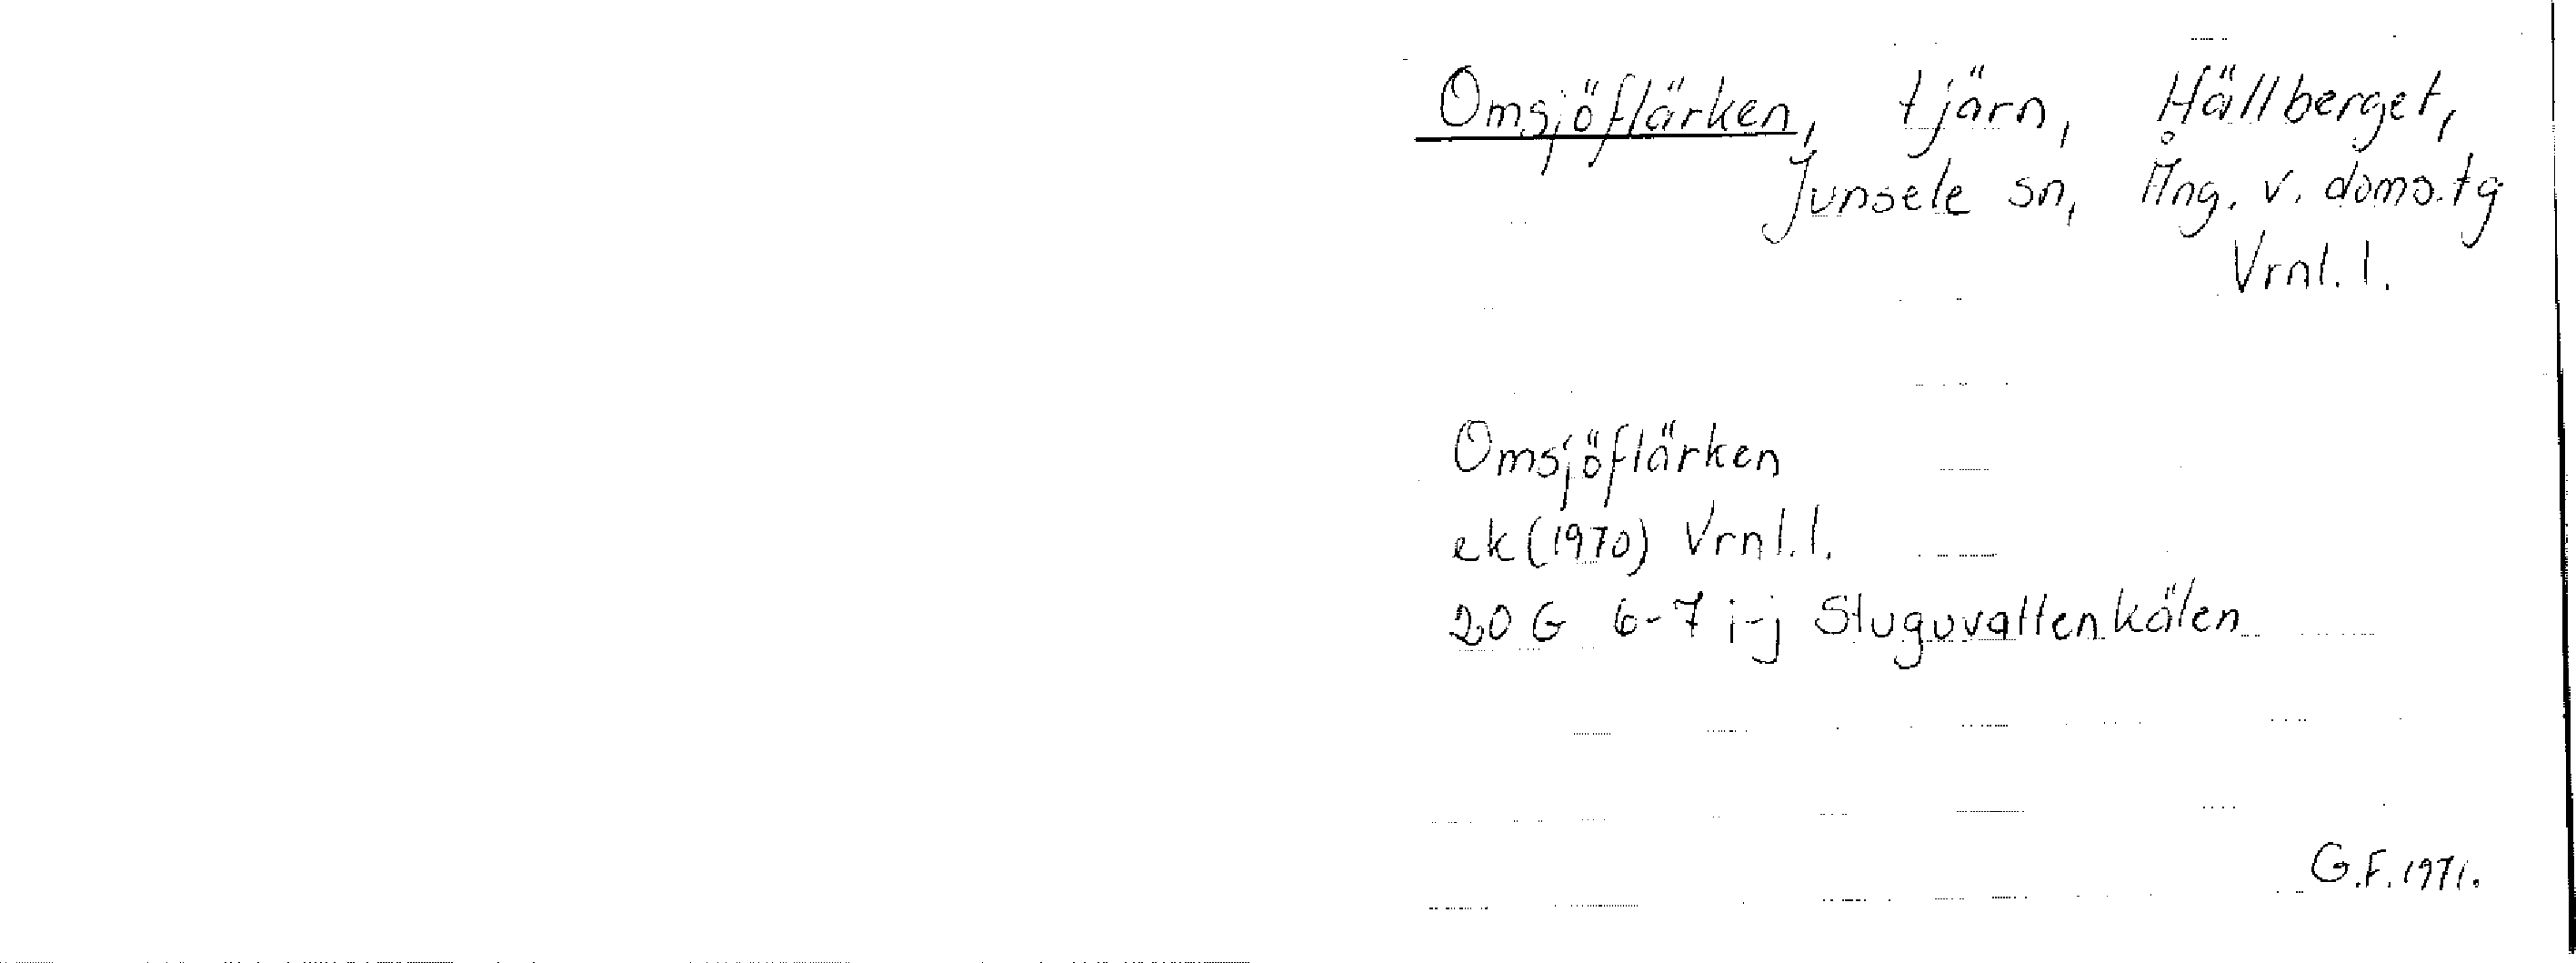 Omsjöflärken, tjärn, Hällberget,
Junsele sn, Ång. v. doms.tg
Vrnl. l.
Omsjöflärken
ek (1970) Vrnl. l.
20 G 6-7 i-j Stuguvattenkälen
G.F. 1971.